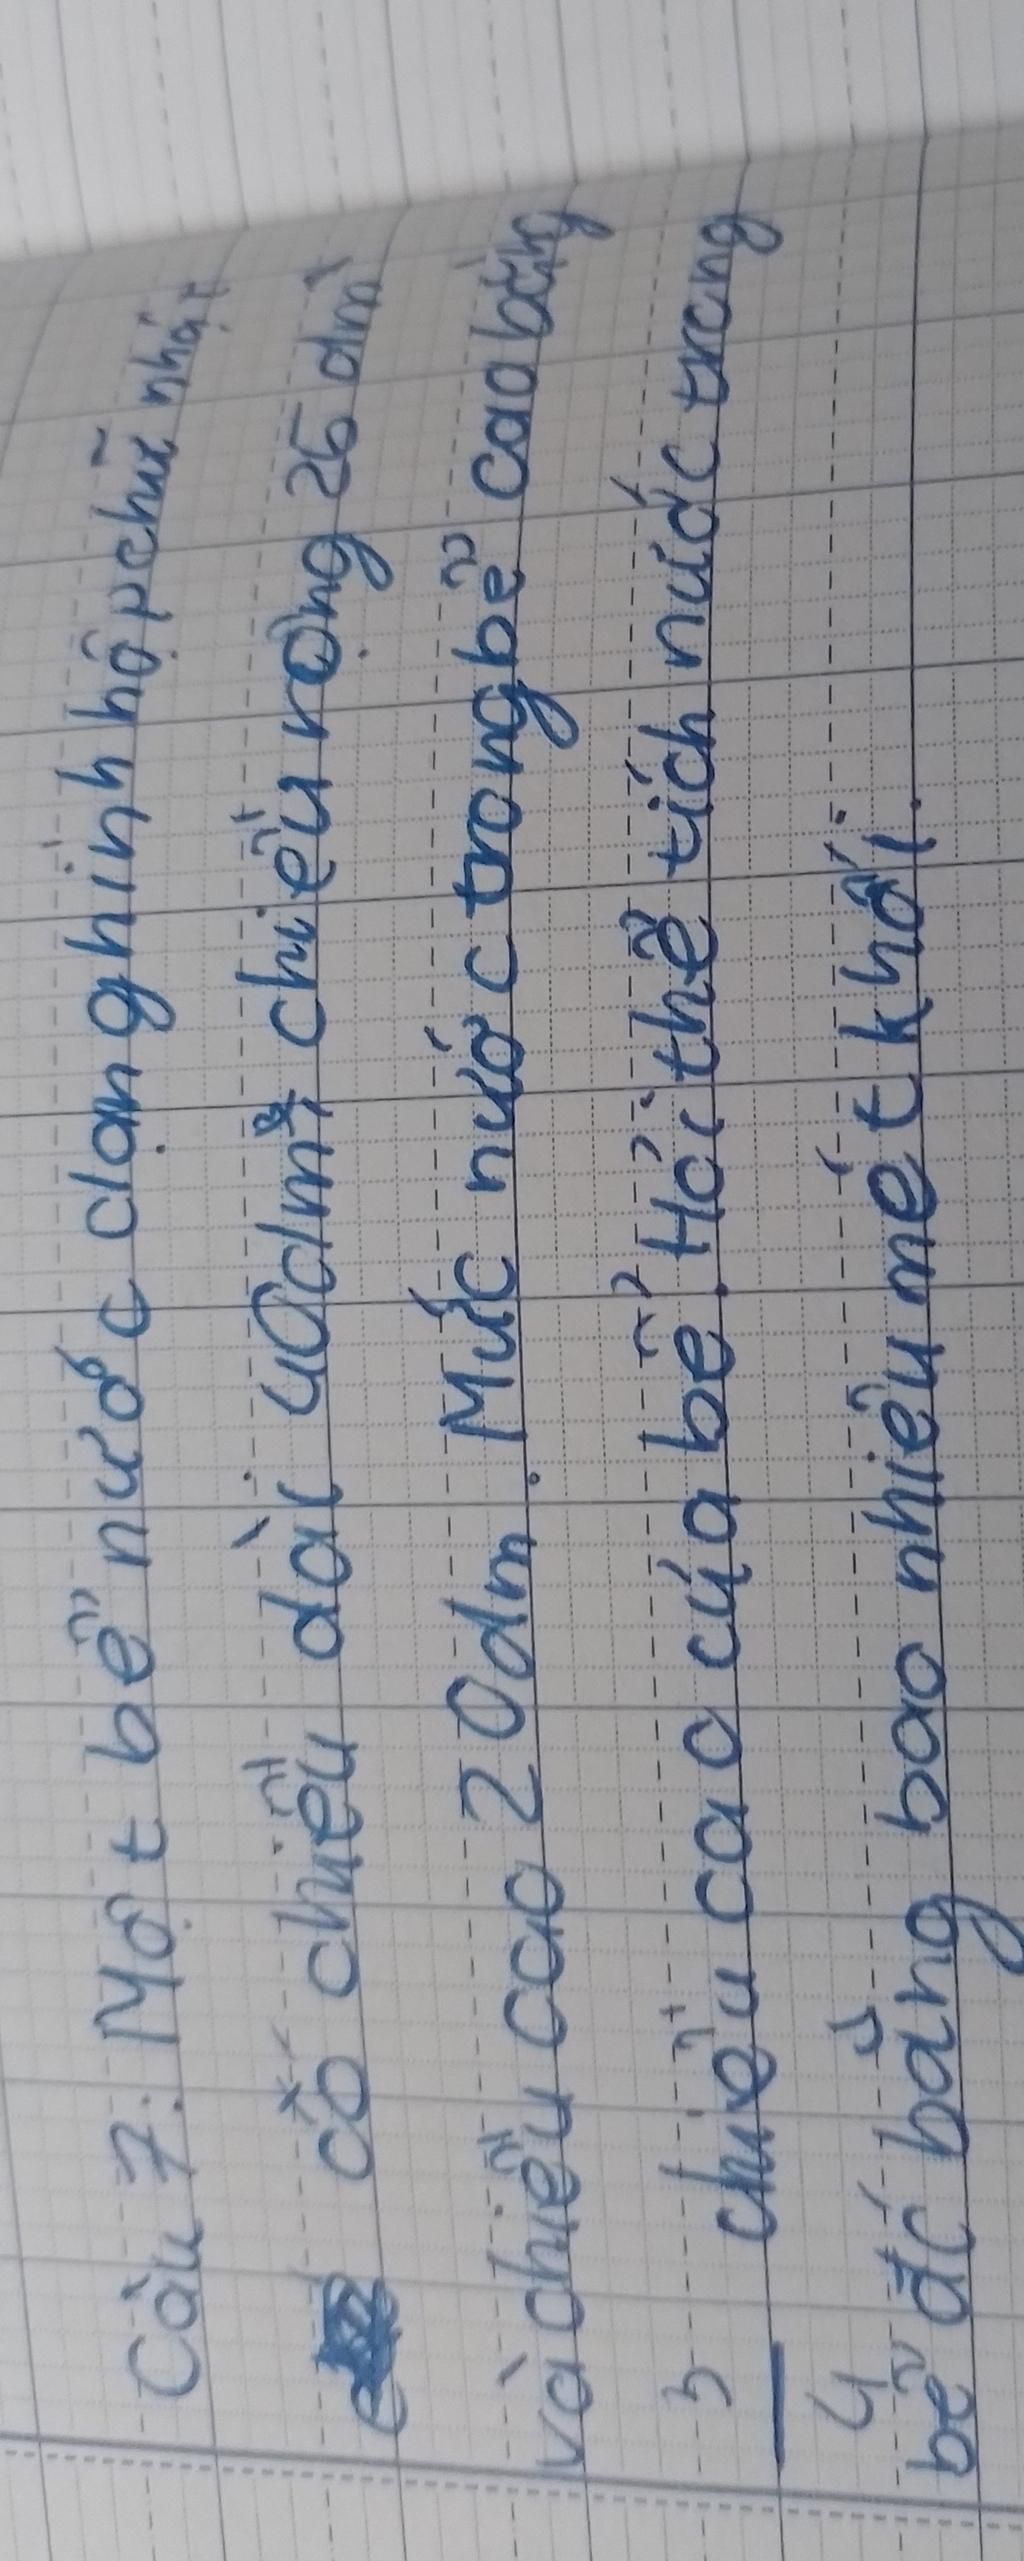 Câu 7: Một bể nước dạng hình hộp chữ nhật
có chiều dài 40dm, chiều rộng 25 dm
và chiều cao 20dm. Mức nước trong bể cao bằng
3/4 chiều cao của bể. Hỏi thể tích nước trong
bể đó bằng bao nhiêu mét khối.